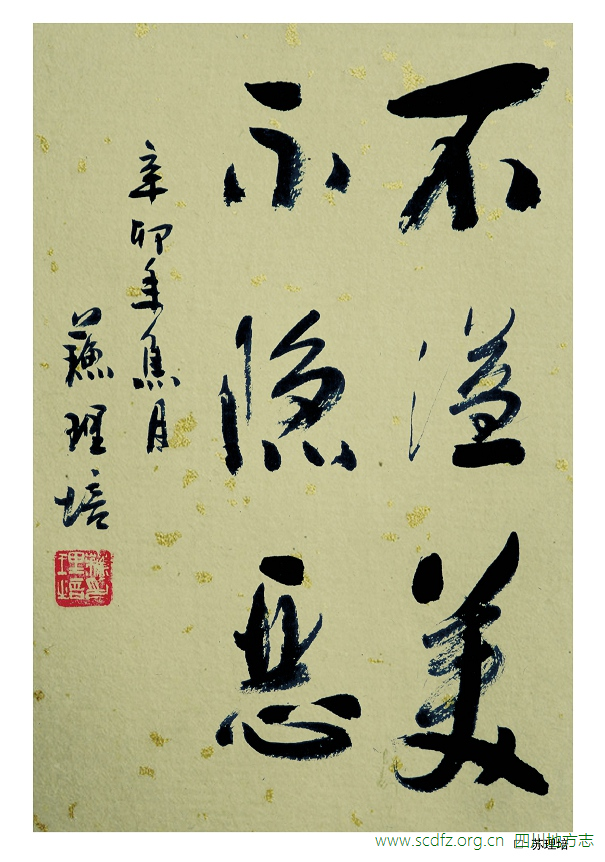 不溢美
不隐恶
辛卯年焦月
蘇理培
蘇理培印
www.scdfz.org.cn 四川地方志
□ 苏理培